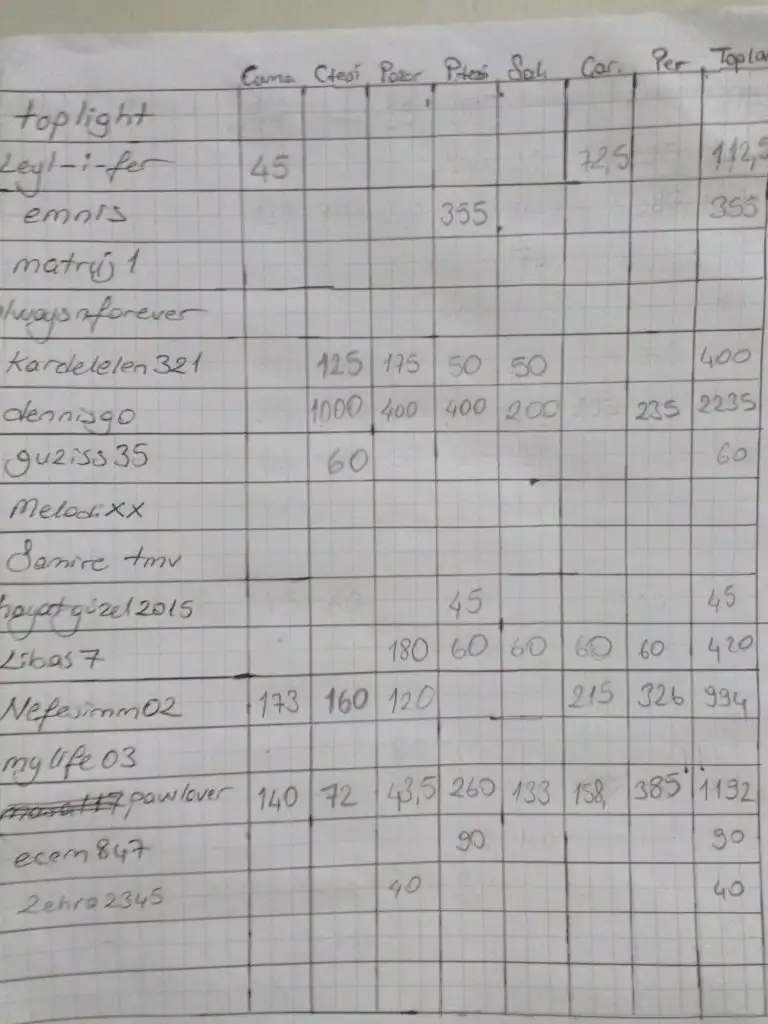 Cuma Ctesi Pazar Ptesi Salı Çar. Per Topla
toplight
Leyl-i-fer 45 72,5 112,5
emnis 355 355
matruş 1
lwaysnforever
Kardelelen 321 125 175 50 50 400
dennisgo 1000 400 400 200 235 2235
guziss35 60 60
Melodixx
Samire tmv
hayatguzel2015 45 45
Libas7 180 60 60 60 60 420
Nefesimm02 173 160 120 215 326 994
mylife 03
pawlover 140 72 43,5 260 133 158, 385 1192
ecem847 90 90
Zehra2345 40 40